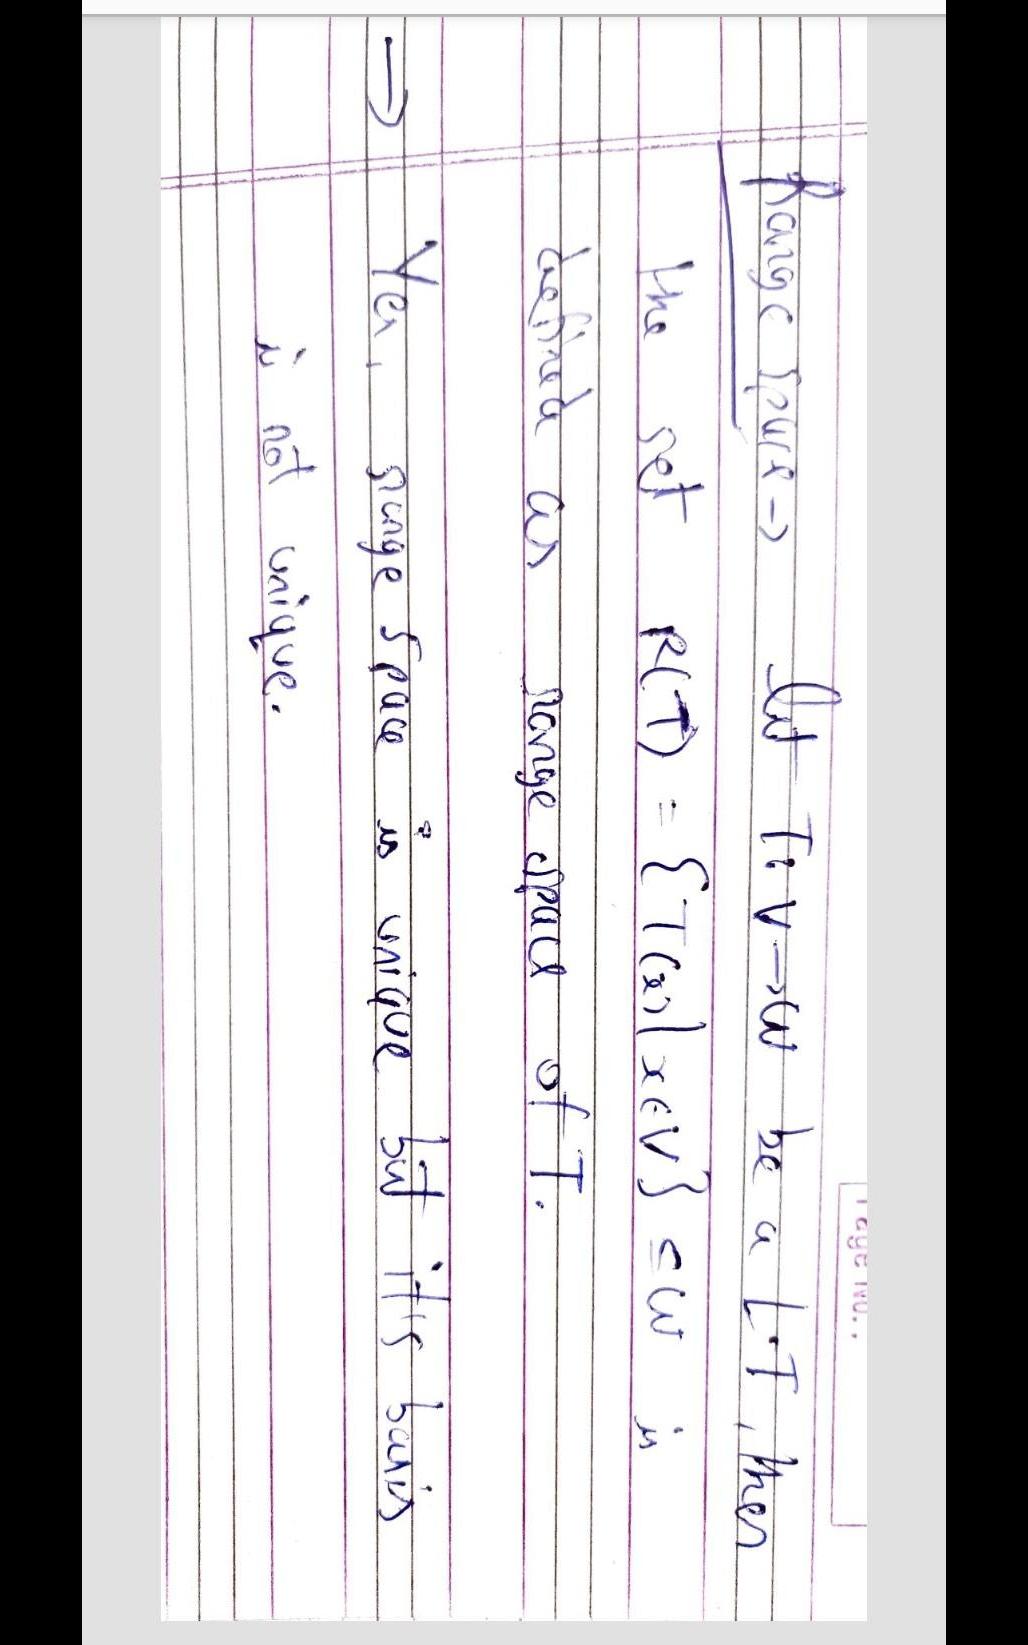 Page No..
Range Space → Let T: V→W be a L.T, then
the set R(T) = {T(x) | x∈V} ⊆ W is
defined as range space of T.
→ Yes, range space is unique but it's basis
is not unique.